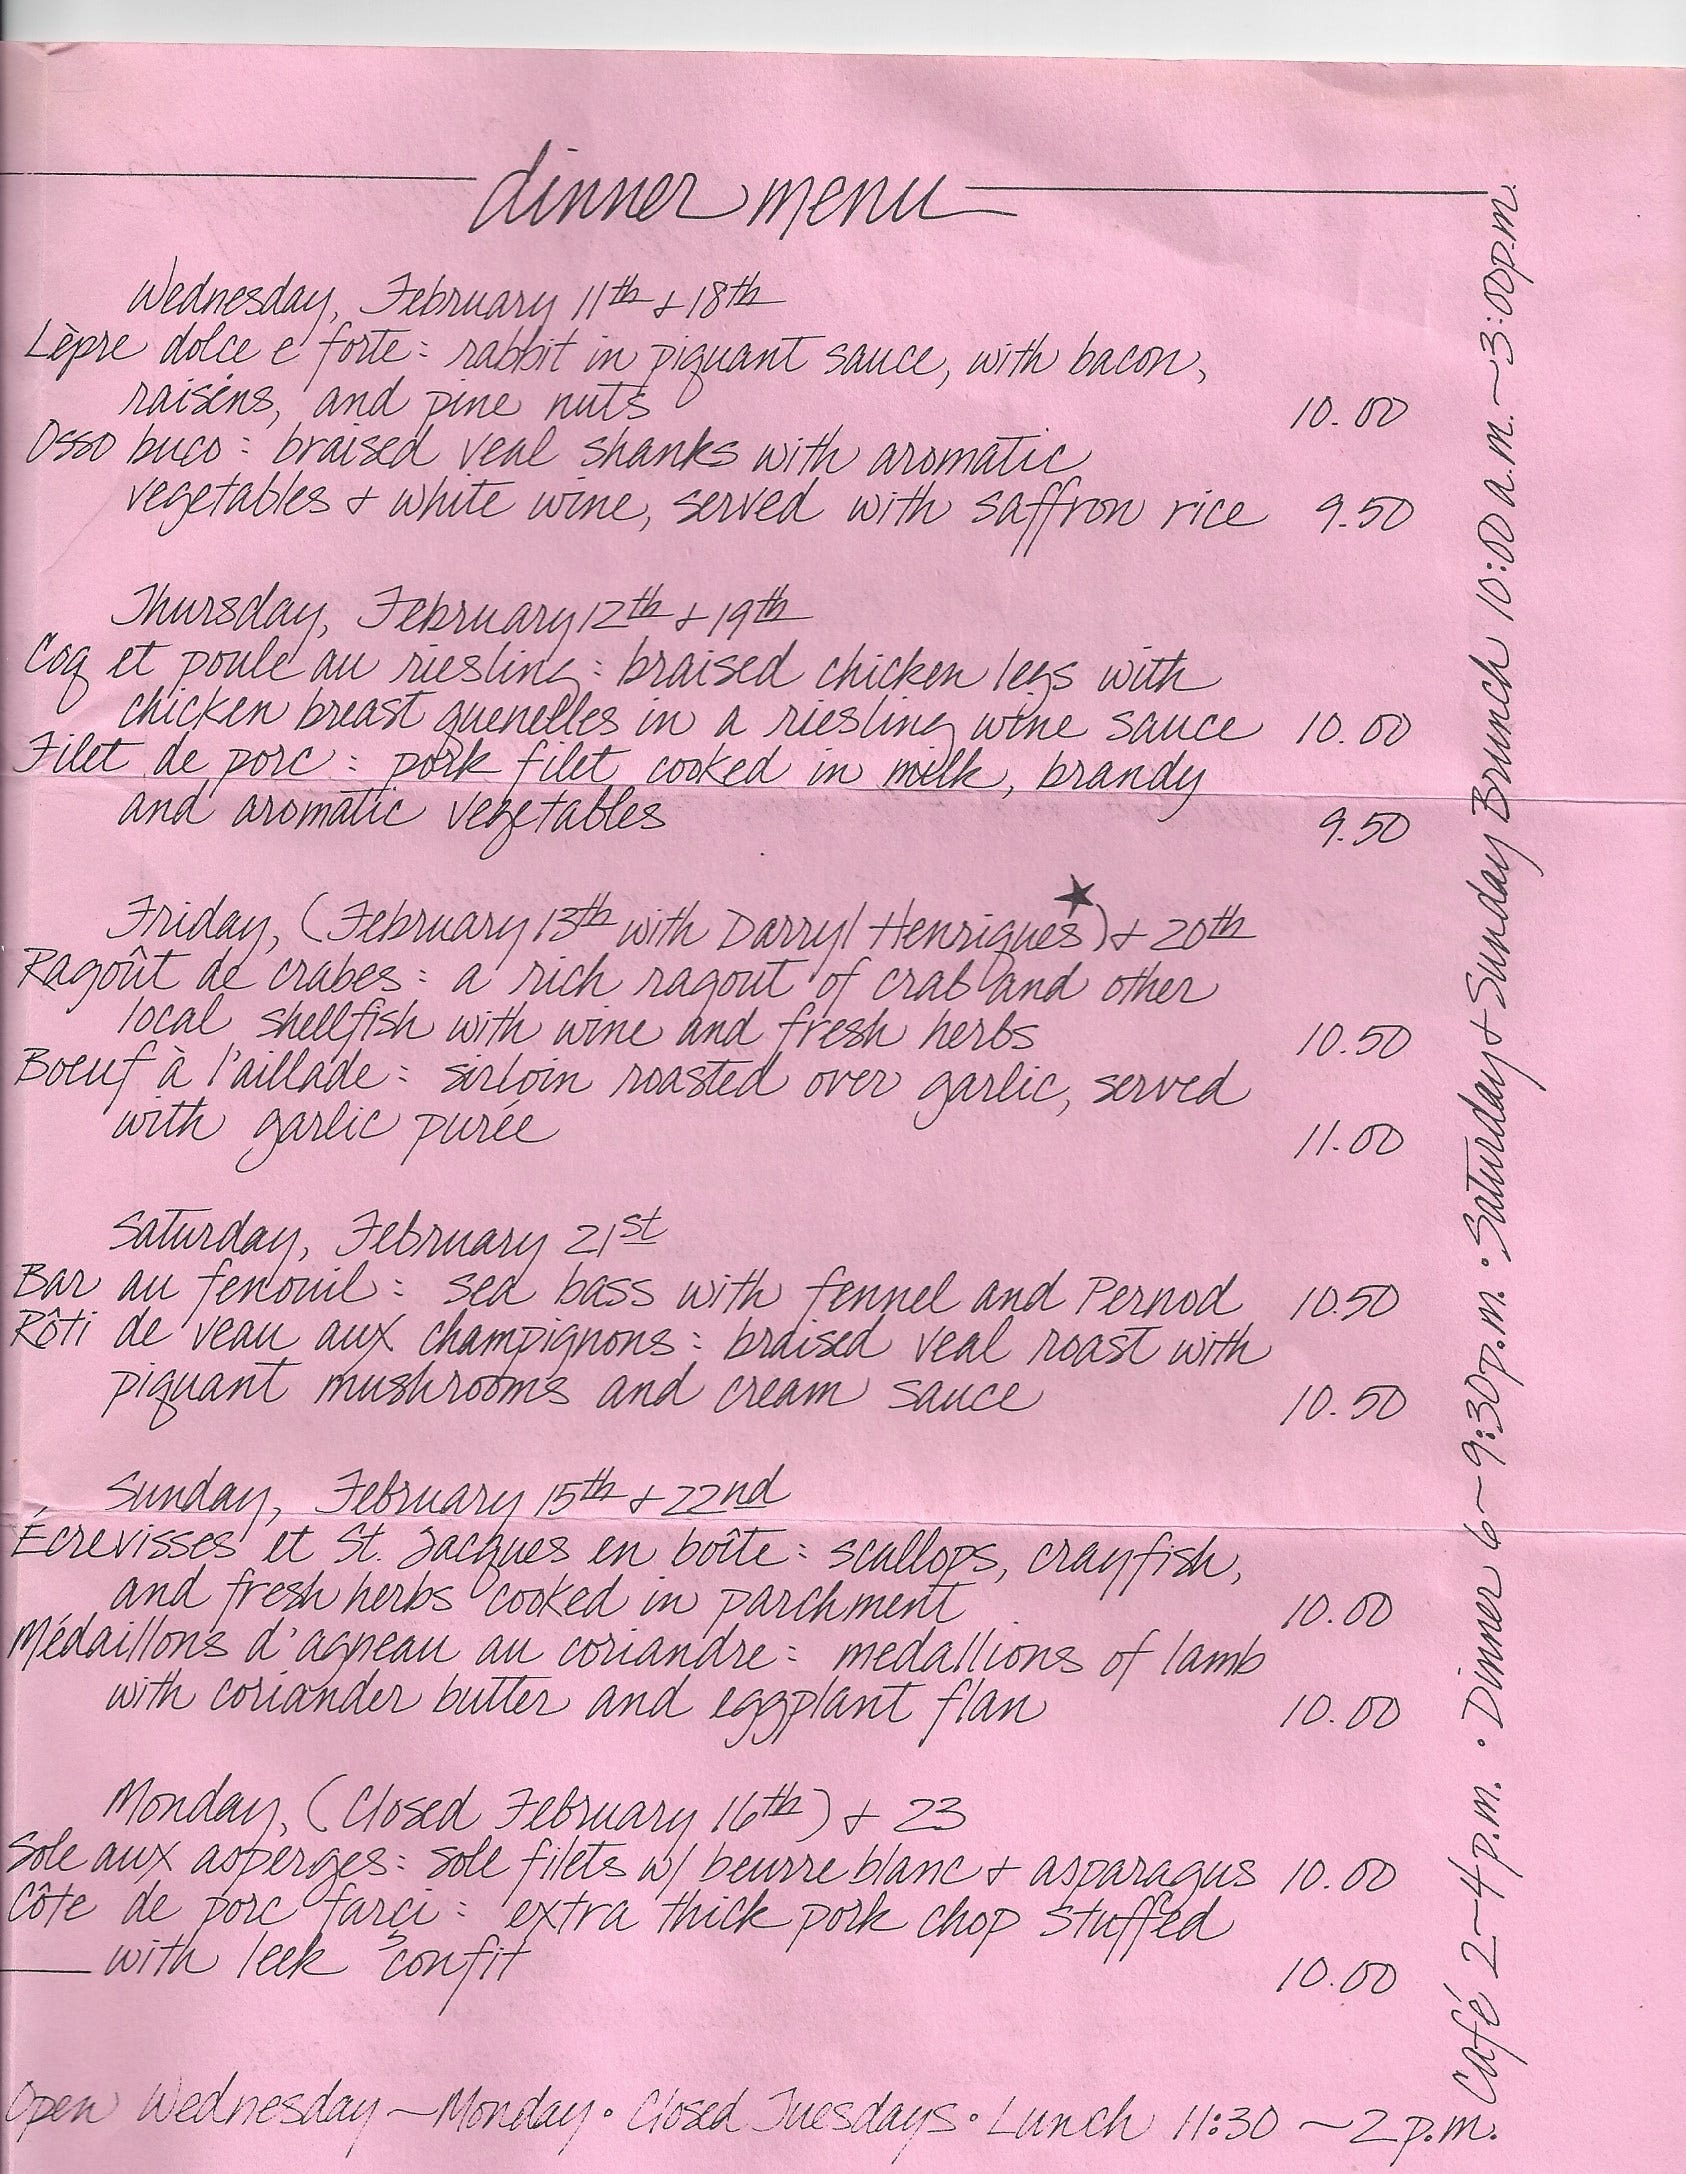 dinner menu
Wednesday, February 11th + 18th
Lèpre dolce e forte: rabbit in piquant sauce, with bacon,
raisins, and pine nuts 10.00
Osso buco: braised veal shanks with aromatic
vegetables + white wine, served with saffron rice 9.50
Thursday, February 12th + 19th
Coq et poule au riesling: braised chicken legs with
chicken breast quenelles in a riesling wine sauce 10.00
Filet de porc: pork filet cooked in milk, brandy
and aromatic vegetables 9.50
Friday, (February 13th with Darryl Henriques★) + 20th
Ragoût de crabes: a rich ragout of crab and other
local shellfish with wine and fresh herbs 10.50
Boeuf à l'aillade: sirloin roasted over garlic, served
with garlic purée 11.00
Saturday, February 21st
Bar au fenouil: sea bass with fennel and Pernod 10.50
Rôti de veau aux champignons: braised veal roast with
piquant mushrooms and cream sauce 10.50
Sunday, February 15th + 22nd
Écrevisses et St. Jacques en boîte: scallops, crayfish,
and fresh herbs cooked in parchment 10.00
Médaillons d'agneau au coriandre: medallions of lamb
with coriander butter and eggplant flan 10.00
Monday, (Closed February 16th) + 23
Sole aux asperges: sole filets w/ beurre blanc + asparagus 10.00
Côte de porc farçi: extra thick pork chop stuffed
with leek confit 10.00
Open Wednesday ~ Monday • Closed Tuesdays • Lunch 11:30 ~ 2 p.m.
Café 2 ~ 4 p.m. • Dinner 6 ~ 9:30 p.m. • Saturday + Sunday Brunch 10:00 a.m. ~ 3:00 p.m.